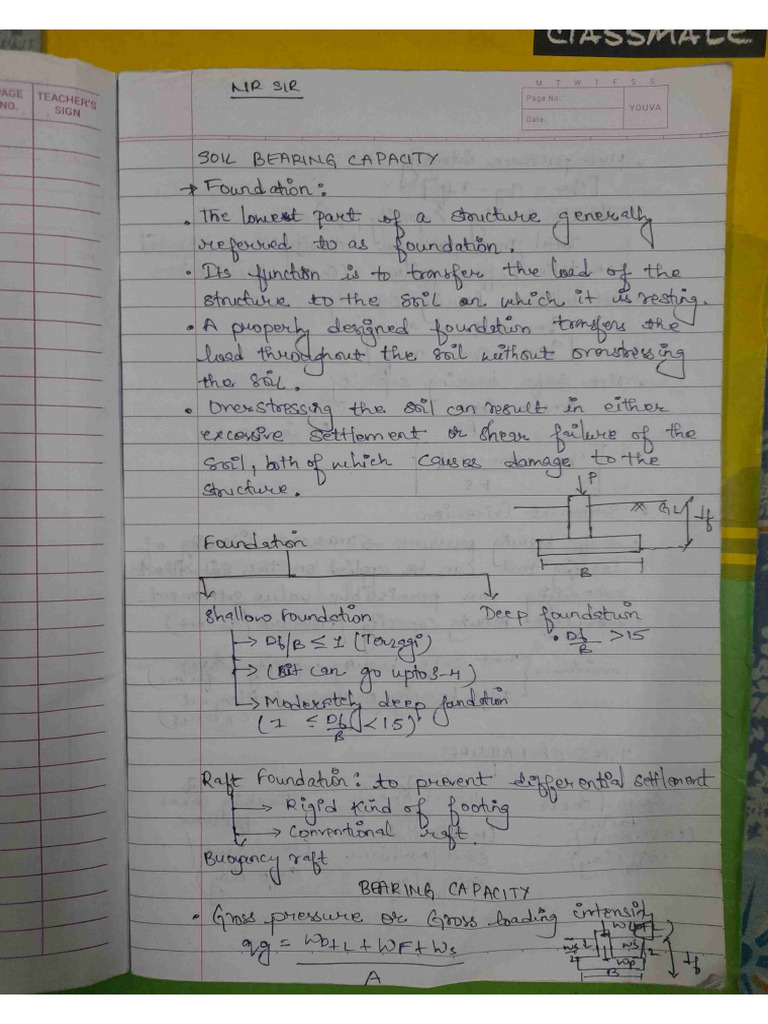 CLASSMATE
PAGE NO.
TEACHER'S SIGN
NIR SIR
M T W T F S S
Page No.:
Date:
YOUVA
SOIL BEARING CAPACITY
→ Foundation:
• The lowest part of a structure generally
referred to as foundation.
• Its function is to transfer the load of the
structure to the soil on which it is resting.
• A properly designed foundation transfers the
load throughout the soil without overstressing
the soil.
• Overstressing the soil can result in either
excessive settlement or shear failure of the
soil, both of which causes damage to the
structure.
P
GL
Df
B
Foundation
Shallow Foundation
Deep foundation
→ Df/B ≤ 1 (Terzagi)
• Df/B > 15
→ (it can go upto 3-4)
→ Moderately deep foundation
(1 ≤ Df/B < 15)
Raft Foundation: to prevent differential settlement
→ Rigid kind of footing
→ Conventional raft.
Buoyancy raft
BEARING CAPACITY
• Gross pressure or Gross loading intensity
qg = WD+L + WF + Ws
A
Ws/2
Ws/2
WF
B
Df